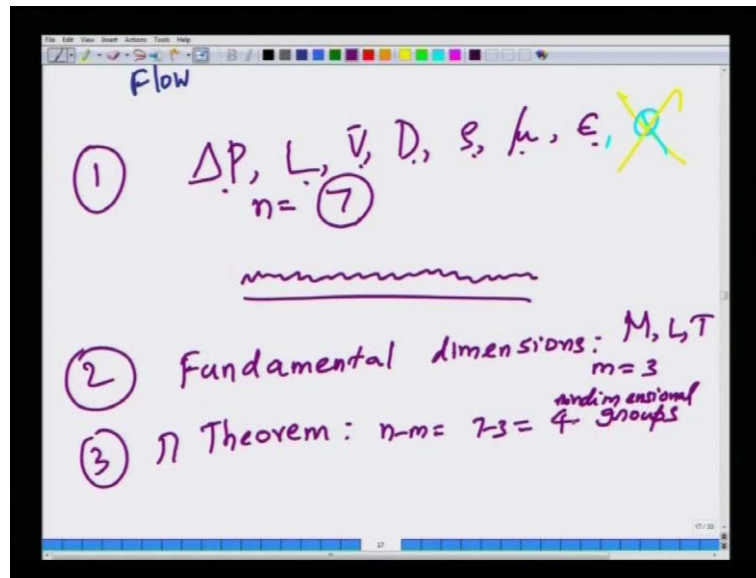 File Edit View Insert Actions Tools Help
Flow
① ΔP, L, V̄, D, ρ, μ, ε,
n= ⑦
② Fundamental dimensions: M, L, T
m=3
③ Π Theorem: n-m= 7-3= 4 nondimensional groups
17